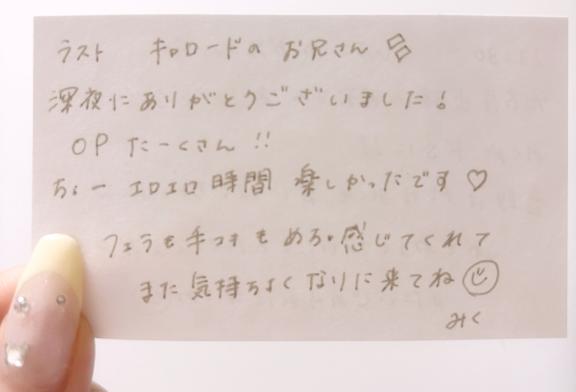 ラスト キャロードの お兄さん
深夜にありがとうございました!
OP たーくさん!!
ちょー エロエロ時間 楽しかったです♡
フェラも手コキもめちゃ感じてくれて
また気持ちよくなりに来てね
みく